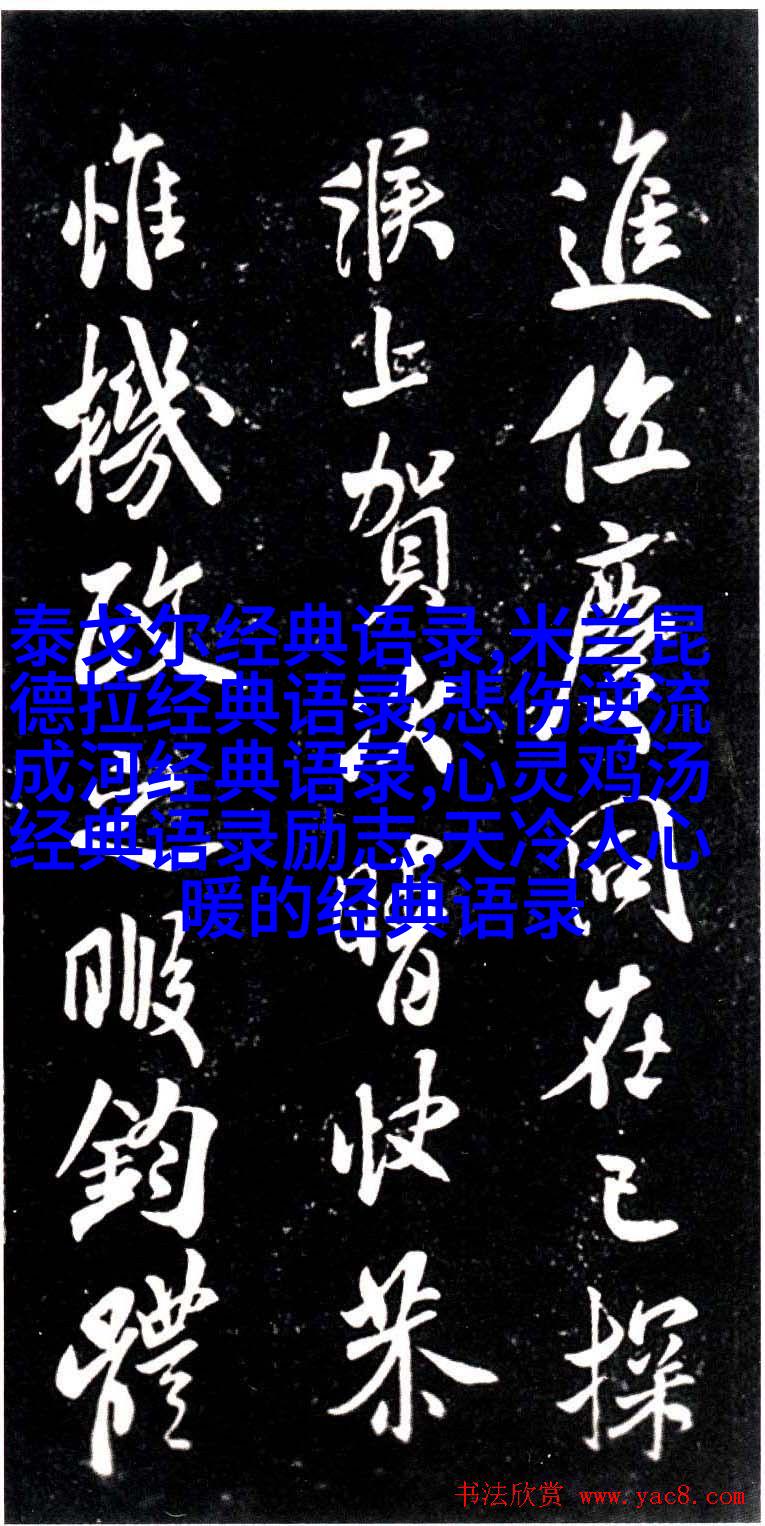 進位慶同在已探
上賀晴快恭
惟機政之暇鈞體
泰戈尔经典语录,米兰昆
德拉经典语录,悲伤逆流
成河经典语录,心灵鸡汤
经典语录励志,天冷人心
暖的经典语录
书法欣赏 www.yac8.com